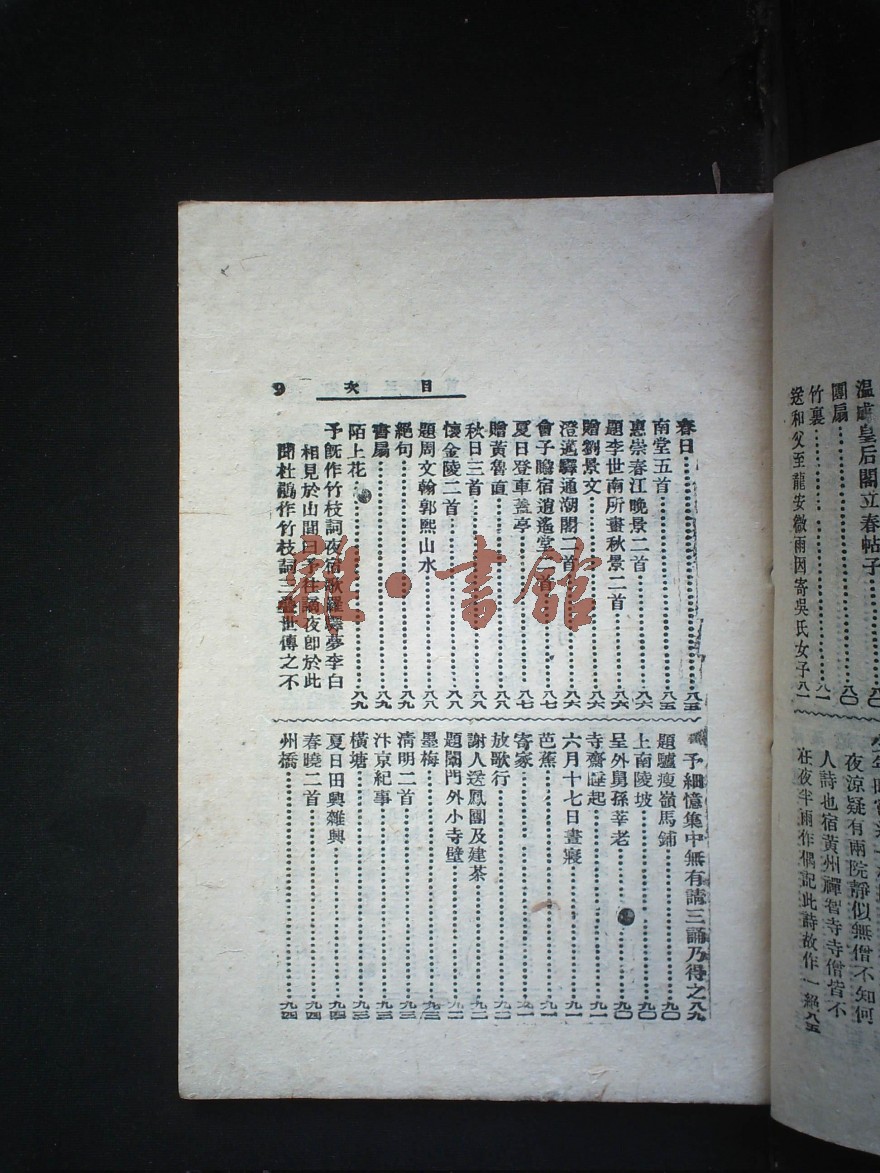 目次
9
春日……八五
南堂五首……八五
惠崇春江晚景二首……八六
題李世南所畫秋景二首……八六
贈劉景文……八六
澄邁驛通潮閣二首……八六
會子瞻宿逍遙堂二首……八七
夏日登車蓋亭……八七
贈黃魯直……八八
秋日三首……八八
懷金陵二首……八八
題周文翰郭熙山水……八八
絕句……八九
書扇……八九
陌上花……八九
予既作竹枝詞夜宿歌羅驛夢李白
相見於山間曰予往謫夜郎於此
聞杜鵑作竹枝詞三疊世傳之不
予細憶集中無有請三誦乃得之八九
題驢瘦嶺馬鋪……九〇
上南陵坡……九〇
呈外舅孫莘老……九〇
寺齋睡起……九一
六月十七日晝寢……九一
芭蕉……九一
寄家……九一
放歌行……九二
謝人送鳳團及建茶……九二
題閶門外小寺壁……九二
墨梅……九三
清明二首……九三
汴京紀事……九三
橫塘……九三
夏日田興雜興……九四
春曉二首……九四
州橋……九四
皇后閣立春帖子……八〇
團扇……八〇
竹裏……八一
送和父至龍安微雨因寄吳氏女子八一
夜涼疑有兩院靜似無僧不知何
人詩也宿黃州禪智寺寺僧皆不
在夜半雨作偶記此詩故作一絕八五
雜·書館